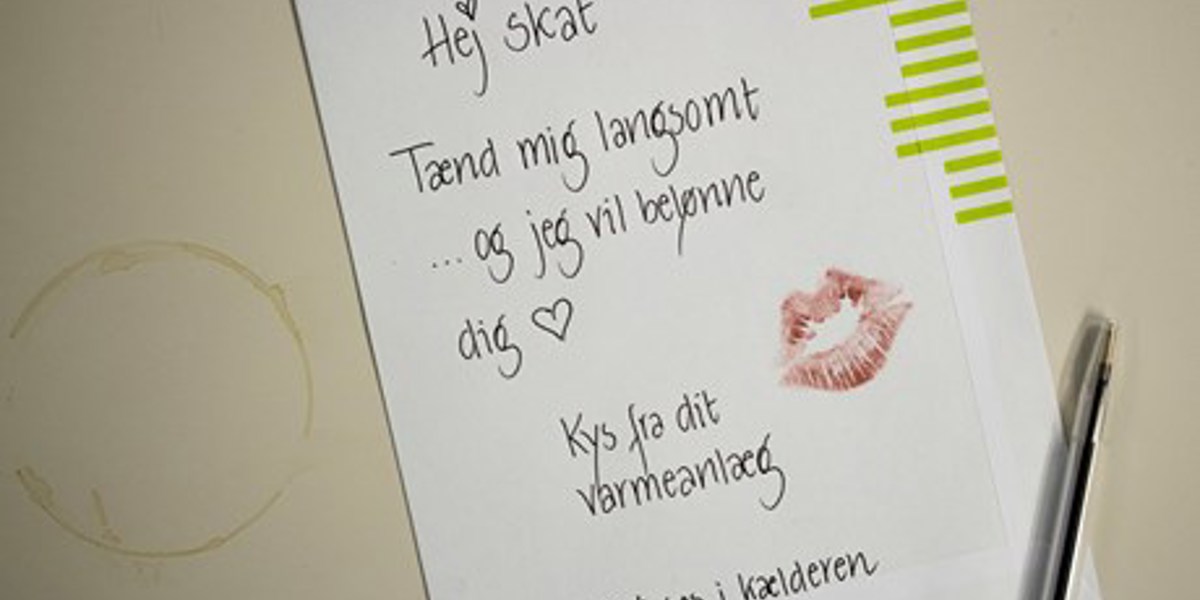 Hej skat
Tænd mig langsomt
... og jeg vil belønne
dig ♡
Kys fra dit
varmeanlæg
i kælderen